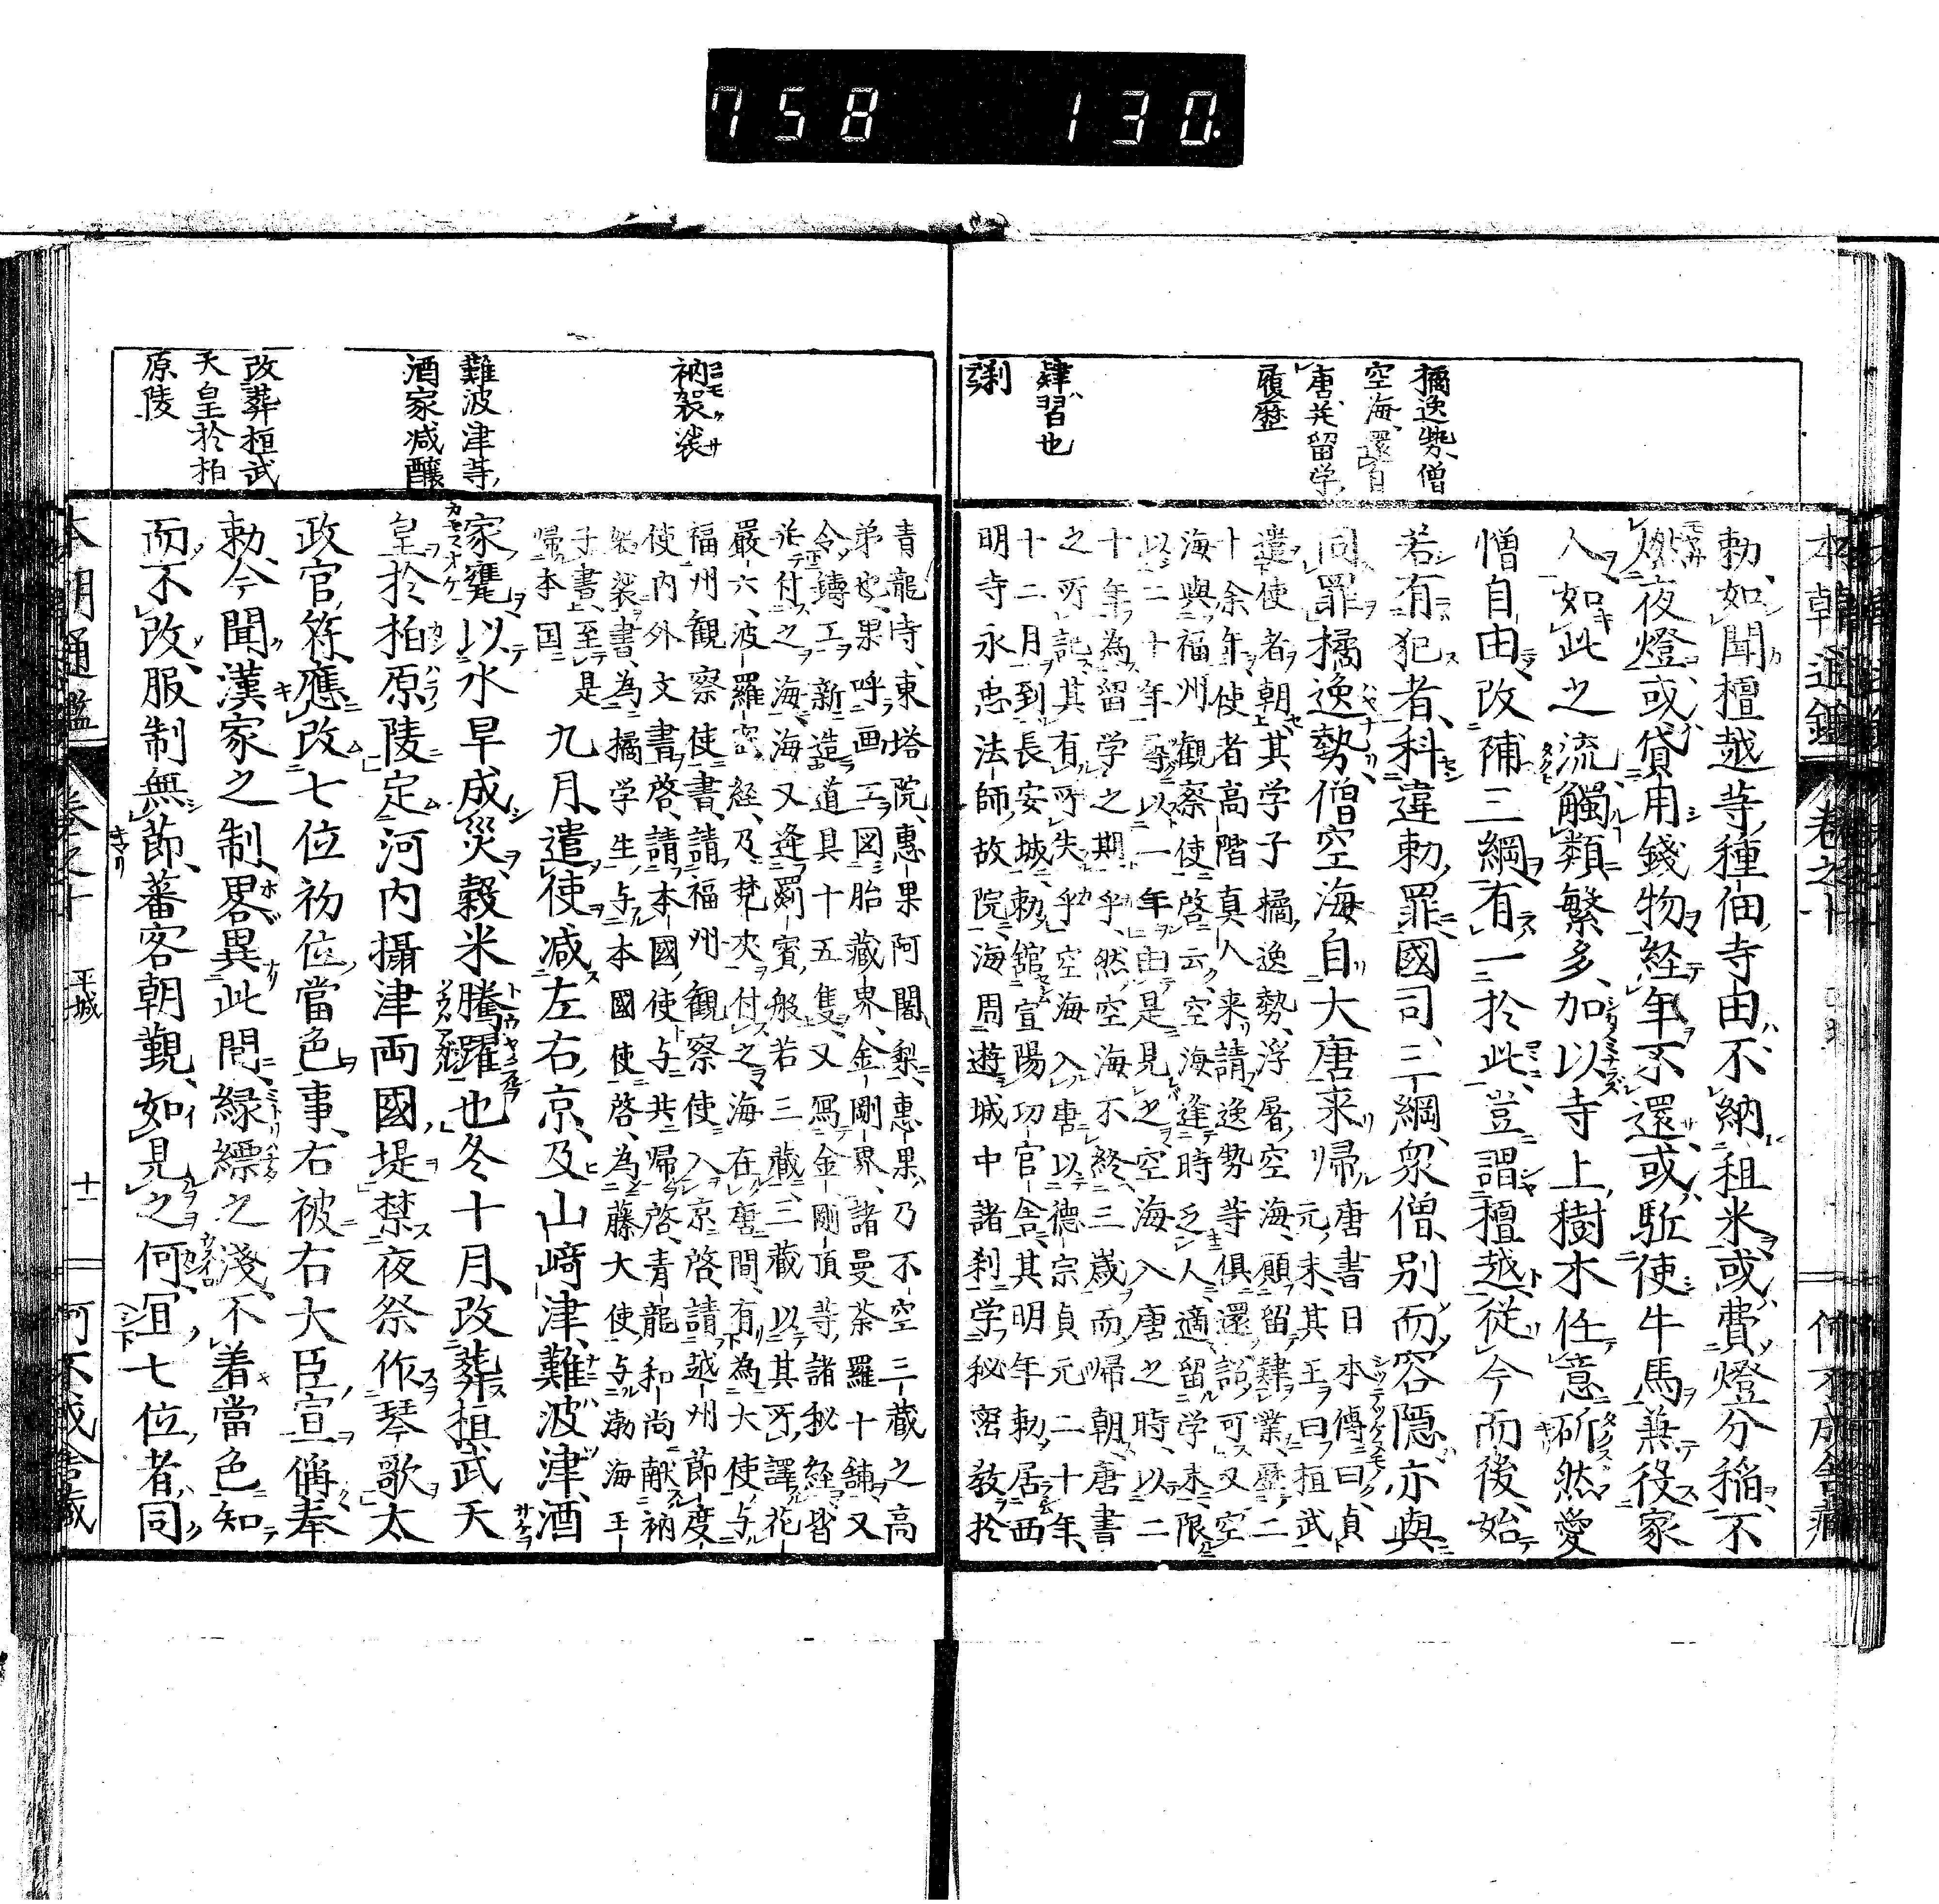 758 130.
橘逸勢僧
空海還自
唐并留学
履歴
肄習也
刹
勅、如聞檀越等、種佃寺田、不納租米、或費燈分稲、不
燃夜燈、或貸用錢物、経年不還、或駈使牛馬、兼役家
人、如此之流、觸類繁多、加以寺上樹木、任意斫然、愛
憎自由、改補三綱、有一於此、豈謂檀越、従今而後、始
若有犯者、科違勅罪、國司三綱衆僧、別而容隠、亦與
同罪、橘逸勢、僧空海、自大唐来帰、
唐書日本傳曰、貞
元末、其王曰桓武、
遣使者朝、其学子橘逸勢、浮屠空海、願留肄業、歴二
十余年、使者高階真人来、請逸勢等俱還、詔可、又空
海與福州觀察使啓云、空海逢時乏人、適留学末、限
以二十年、尋以一年、由是見之、空海入唐之時、以二
十年為留学之期乎、然空海不終三歳、而帰朝、唐書
之所記、其有所失乎、空海入唐、以德宗貞元二十年、
十二月到長安城、勅館宣陽坊官舎、其明年勅居西
明寺永忠法師故院、海周遊城中諸刹、学秘密教於
本朝通鑑 巻之十
何不成舎蔵
衲袈裟
難波津等
酒家减釀
改葬桓武
天皇於柏
原陵
青龍寺東塔院惠果阿闍梨、惠果乃不空三藏之高
弟也、果呼画工、図胎藏界、金剛界、諸曼荼羅十鋪、又
令鑄工、新造道具十五隻、又寫金剛頂等、諸秘経、皆
并付之海、海又逢罽賓般若三藏、三藏以其所譯花
嚴六波羅密経、及梵夾付之、海在唐間、有為大使、与
福州観察使書、請福州観察使入京啓、請越州節度
使内外文書啓、請本國使与共帰啓、青龍和尚献衲
袈裟書、為橘学生、与本國使啓、為藤大使、与渤海王
子書、至是
帰本国
九月、遣使减左右京、及山﨑津、難波津、酒
家甕、以水旱成災、穀米騰躍也、冬十月、改葬桓武天
皇於柏原陵、定河内攝津両國堤、禁夜祭作琴歌、太
政官符、應改七位初位當色事、右被右大臣宣偁、奉
勅、今聞漢家之制、畧異此間、緑縹之淺、不着當色、知
而不改、服制無節、蕃客朝覲、如見之何、冝七位者、同
本朝通鑑 巻之十 平城 十一 何不成舎蔵